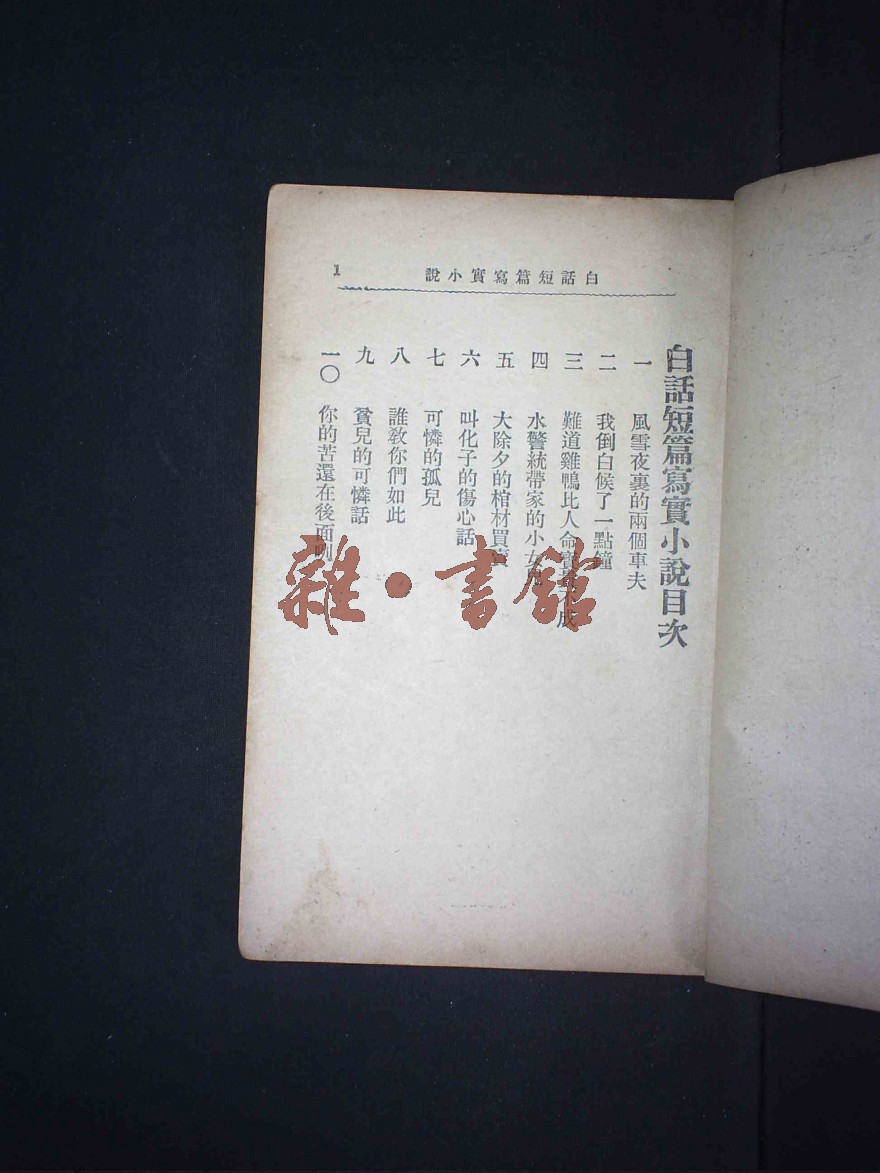 白話短篇寫實小說
1
白話短篇寫實小說目次
一 風雪夜裏的兩個車夫
二 我倒白候了一點鐘
三 難道雞鴨比人命寶貴不成
四 水警統帶家的小女兒
五 大除夕的棺材買賣
六 叫化子的傷心話
七 可憐的孤兒
八 誰教你們如此
九 貧兒的可憐話
一〇 你的苦還在後面咧
雜·書館